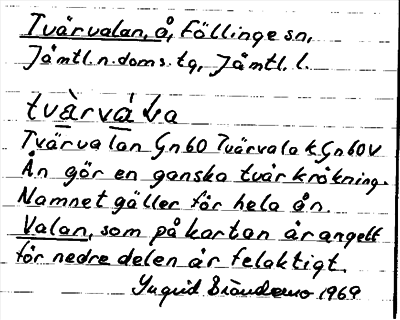 Tvärvalan, å, Föllinge sn,
Jämtl. n. doms. tg, Jämtl. l.
tvàrvá̀la
Tvärvalan Gn60 Tvärvala k Gn60V
Ån gör en ganska tvär krökning.
Namnet gäller för hela ån.
Valan, som på kartan är angett
för nedre delen är felaktigt.
Yngrid Brändemo 1969